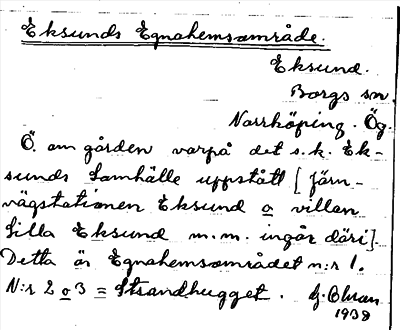 Eksunds Egnahemsområde.
Eksund.
Borgs sn.
Norrköping. Ög.
Ö. om gården varpå det s.k. Ek-
sunds Samhälle uppstått [järn-
vägstationen Eksund o villan
Lilla Eksund m.m. ingår däri].
Detta är Egnahemsområdet n:r 1.
N:r 2 o 3 = Strandhugget.
1938